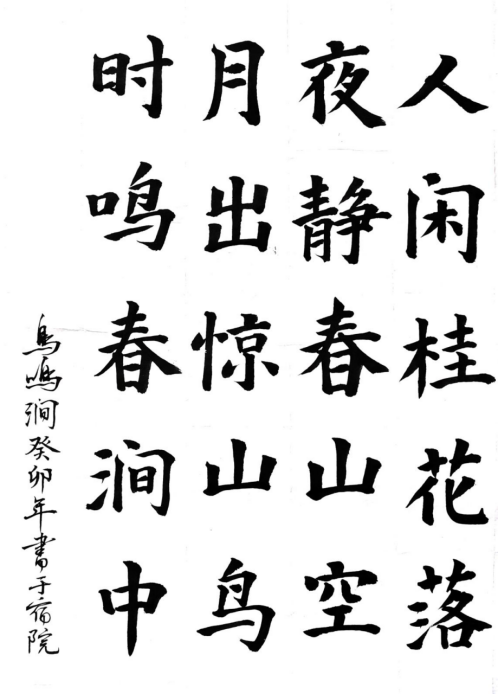 人闲桂花落
夜静春山空
月出惊山鸟
时鸣春涧中
鸟鸣涧癸卯年书于宿院